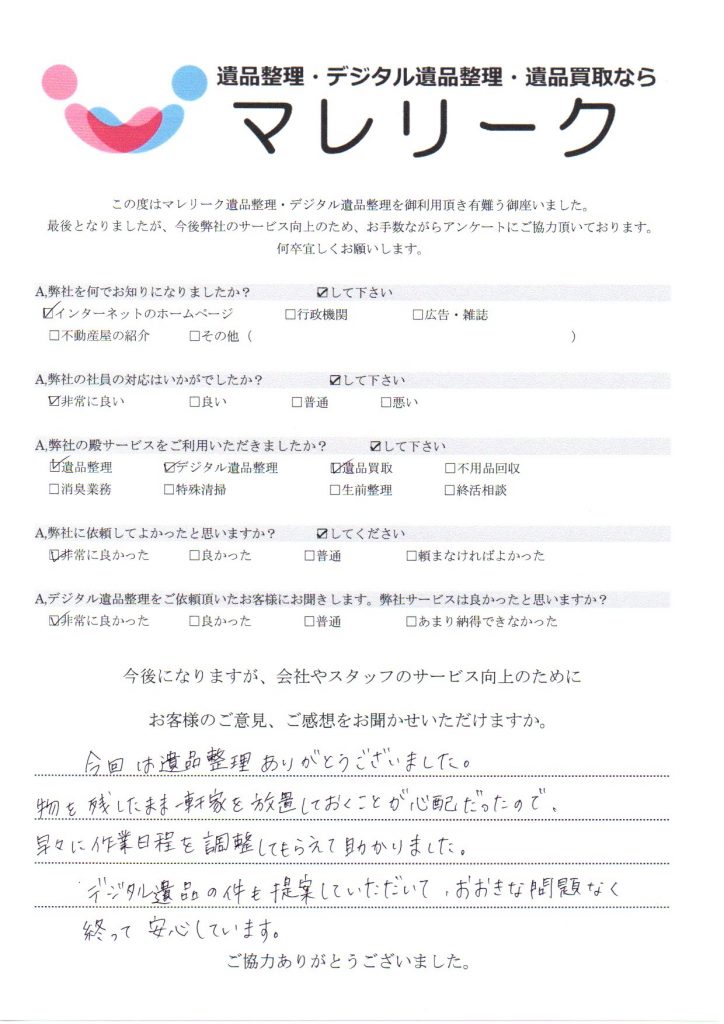 遺品整理・デジタル遺品整理・遺品買取なら
マレリーク
この度はマレリーク遺品整理・デジタル遺品整理を御利用頂き有難う御座いました。
最後となりましたが、今後弊社のサービス向上のため、お手数ながらアンケートにご協力頂いております。
何卒宜しくお願いします。
A,弊社を何でお知りになりましたか？ ☑して下さい
☑インターネットのホームページ □行政機関 □広告・雑誌
□不動産屋の紹介 □その他（ ）
A,弊社の社員の対応はいかがでしたか？ ☑して下さい
☑非常に良い □良い □普通 □悪い
A,弊社の殿サービスをご利用いただきましたか？ ☑して下さい
☑遺品整理 ☑デジタル遺品整理 ☑遺品買取 □不用品回収
□消臭業務 □特殊清掃 □生前整理 □終活相談
A,弊社に依頼してよかったと思いますか？ ☑してください
☑非常に良かった □良かった □普通 □頼まなければよかった
A,デジタル遺品整理をご依頼頂いたお客様にお聞きします。弊社サービスは良かったと思いますか？
☑非常に良かった □良かった □普通 □あまり納得できなかった
今後になりますが、会社やスタッフのサービス向上のために
お客様のご意見、ご感想をお聞かせいただけますか。
今回は遺品整理ありがとうございました。
物を残したまま一軒家を放置しておくことが心配だったので、
早々に作業日程を調整してもらえて助かりました。
デジタル遺品の件も提案していただいて、おおきな問題なく
終って安心しています。
ご協力ありがとうございました。